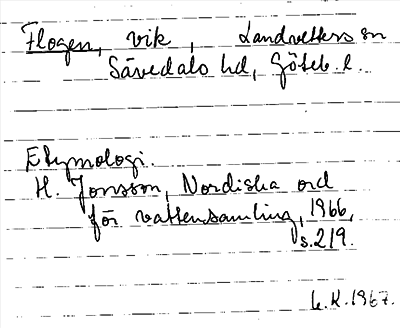 Flogen, vik, Landvetters sn
Sävedals hd, Göteb. l.
Etymologi.
H. Jonsson, Nordiska ord
för vattensamling, 1966,
s. 219.
K. 1967.